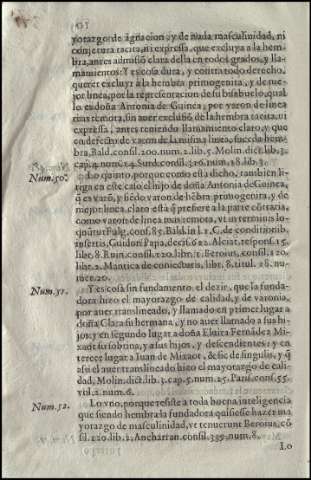 yorazgo de agnacion, y de nuda masculinidad, ni
conjetura tacita, ni expressa, que excluya a la hem-
bra, antes admisiõ clara della en todos grados, y lla-
mamientos: Y es cosa dura, y contra todo derecho,
querer excluyr a la hembra primogenita, y de me-
jor linea, por la representacion de su bisabuelo, qual
lo es doña Antonia de Guinea, por varon de linea
mas remota, sin auer exclusiõ de la hembra tacita, ni
expressa, antes teniendo llamamiento claro, y que
en defecto de varon de la misma linea, suceda hem-
bra, Bald. consil. 200. num. 2. lib. 5. Molin. dict. lib. 3.
cap. 4. num. 14. Surd. consil. 316. num. 28. lib. 3.
Num. 50. Lo quinto, porque como està dicho, tambien li-
tiga en este caso el hijo de doña Antonia de Guinea,
q̃ es varõ, y siẽdo varon de hẽbra primogenita, y de
mejor linea, claro està q̃ prefiere a la parte cõtraria,
como varon de linea mas remota, vt in terminis lo-
quũtur Fulg. cons. 85. Bald. in l. 1. C. de conditionib.
insertis, Guidon Papa, decis. 622. Alciat. respons. 15.
libr. 8. Ruin. consil. 120. libr. 1. Beroius, consil. 120.
libr. 2. Mantica de coniecturis, libr. 8. titul. 18. nu-
mero. 20.
Num. 51. Y es cosa sin fundamento el dezir, que la funda-
dora hizo el mayorazgo de calidad, y de varonia,
por auer transslineado, y llamado en primer lugar a
doña Clara su hermana, y no auer llamado a sus hi-
jos: y en segundo lugar a doña Eluira Fernãdez Mi-
xaot su sobrina, y a sus hijos, y descendientes: y en
tercero lugar a Iuan de Mixaot, & sic de singulis, y q̃
assi el auer translineado hizo el mayorazgo de cali-
dad, Molin. dict. lib. 3. cap. 5. num. 25. Paris. cons. 55.
vol. 2. num. 6.
Num. 52. Lo vno, porque resiste a toda buena inteligencia
que siendo hembra la fundadora quisiesse hazer ma
yorazgo de masculinidad, vt tenuerunt Beroius, cõ
sil. 120. lib. 2. Ancharran. consil. 339. num. 8.
Lo